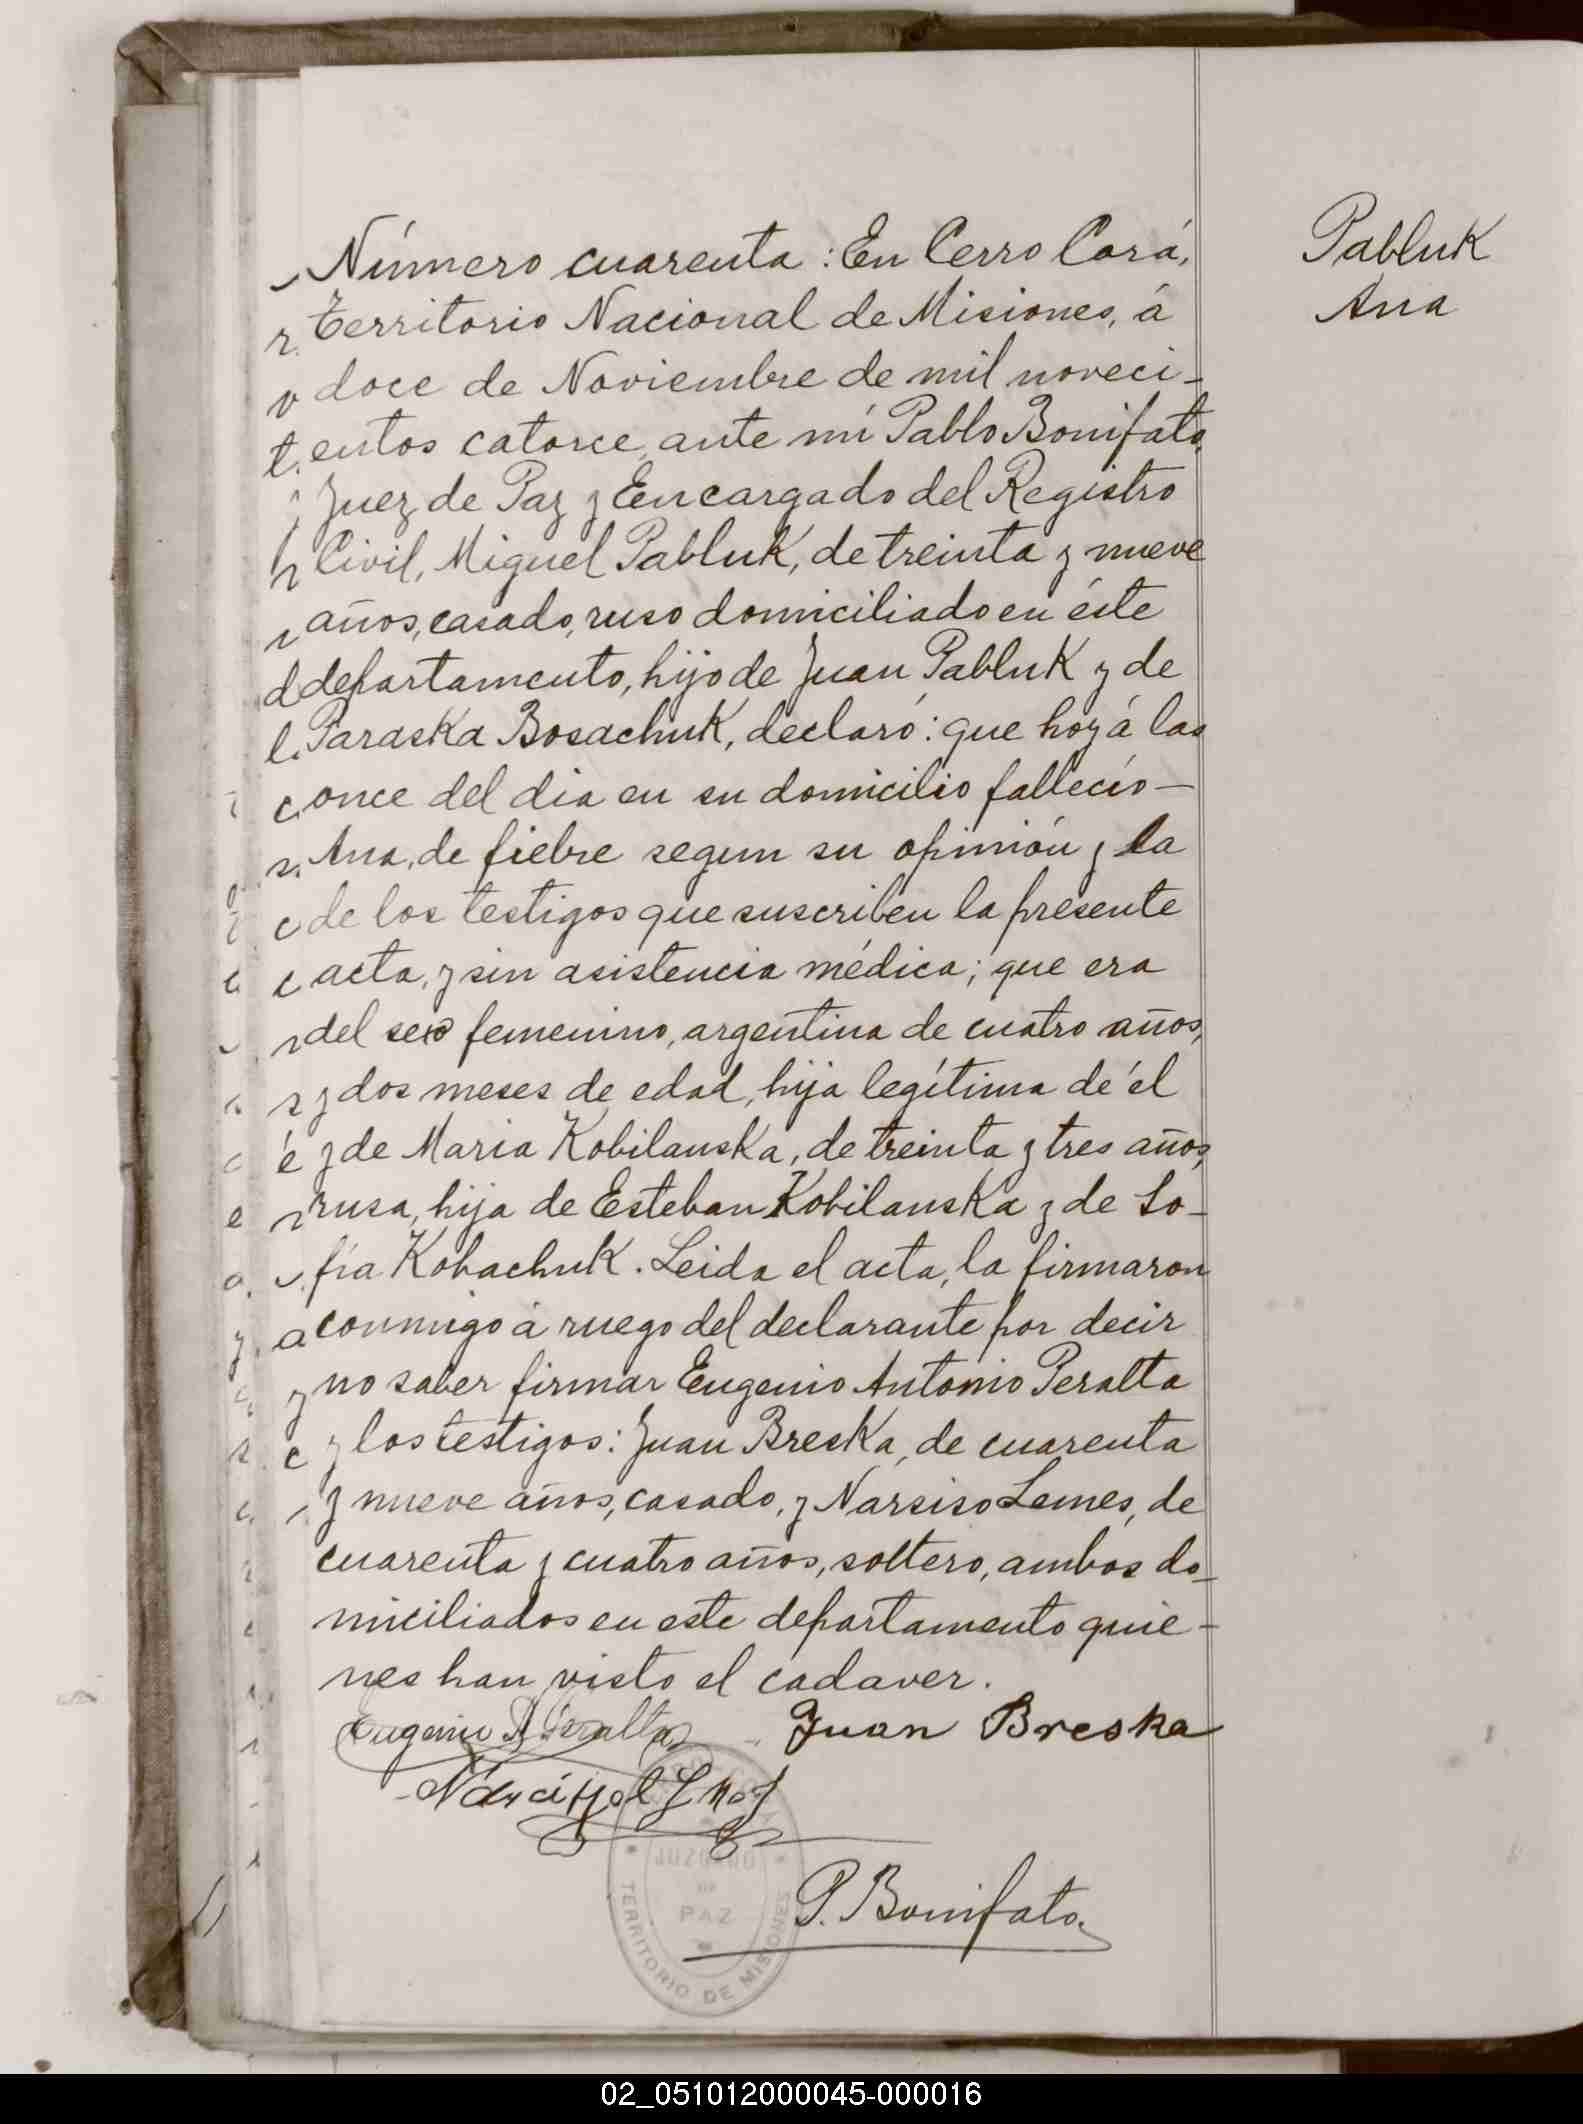 Número cuarenta: En Cerro Corá,
Territorio Nacional de Misiones, á
doce de Noviembre de mil noveci-
entos catorce, ante mí Pablo Bonifato,
Juez de Paz y Encargado del Registro
Civil, Miguel Pabluk, de treinta y nueve
años, casado, ruso domiciliado en éste
departamento, hijo de Juan Pabluk y de
Paraska Bosachuk, declaró: que hoy á las
once del dia en su domicilio falleció—
Ana, de fiebre segun su opinión y la
de los testigos que suscriben la presente
acta, y sin asistencia médica; que era
del sexo femenino, argentina de cuatro años,
y dos meses de edad, hija legítima de él
y de Maria Kobilanska, de treinta y tres años,
rusa, hija de Esteban Kobilanska y de So-
fía Kobachuk. Leida el acta, la firmaron
conmigo á ruego del declarante por decir
no saber firmar Eugenio Antonio Peralta
y los testigos: Juan Breska, de cuarenta
y nueve años, casado, y Narsiso Lemes, de
cuarenta y cuatro años, soltero, ambos do-
miciliados en este departamento quie-
nes han visto el cadaver.
Eugenio A. Peralta Juan Breska
P. Bonifato
JUZGADO
DE
PAZ
TERRITORIO DE MISIONES
Pabluk
Ana
02_051012000045-000016